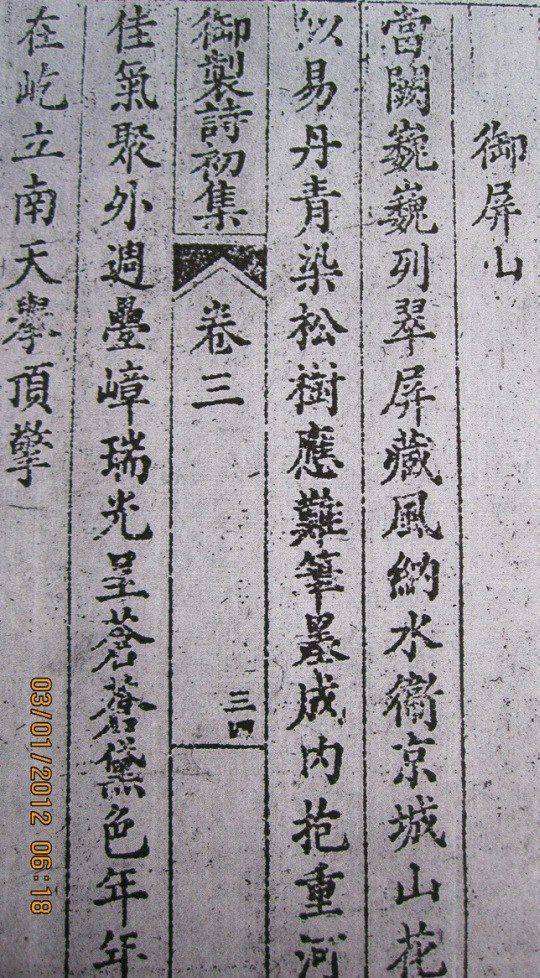 御屏山
當闕巍巍列翠屏藏風納水衞京城山花
似易丹青染松樹應難筆墨成内抱重河
御製詩初集 卷三 三四
佳氣聚外週疊嶂瑞光呈蒼蒼黛色年年
在屹立南天擧頂擎
03/01/2012 06:18